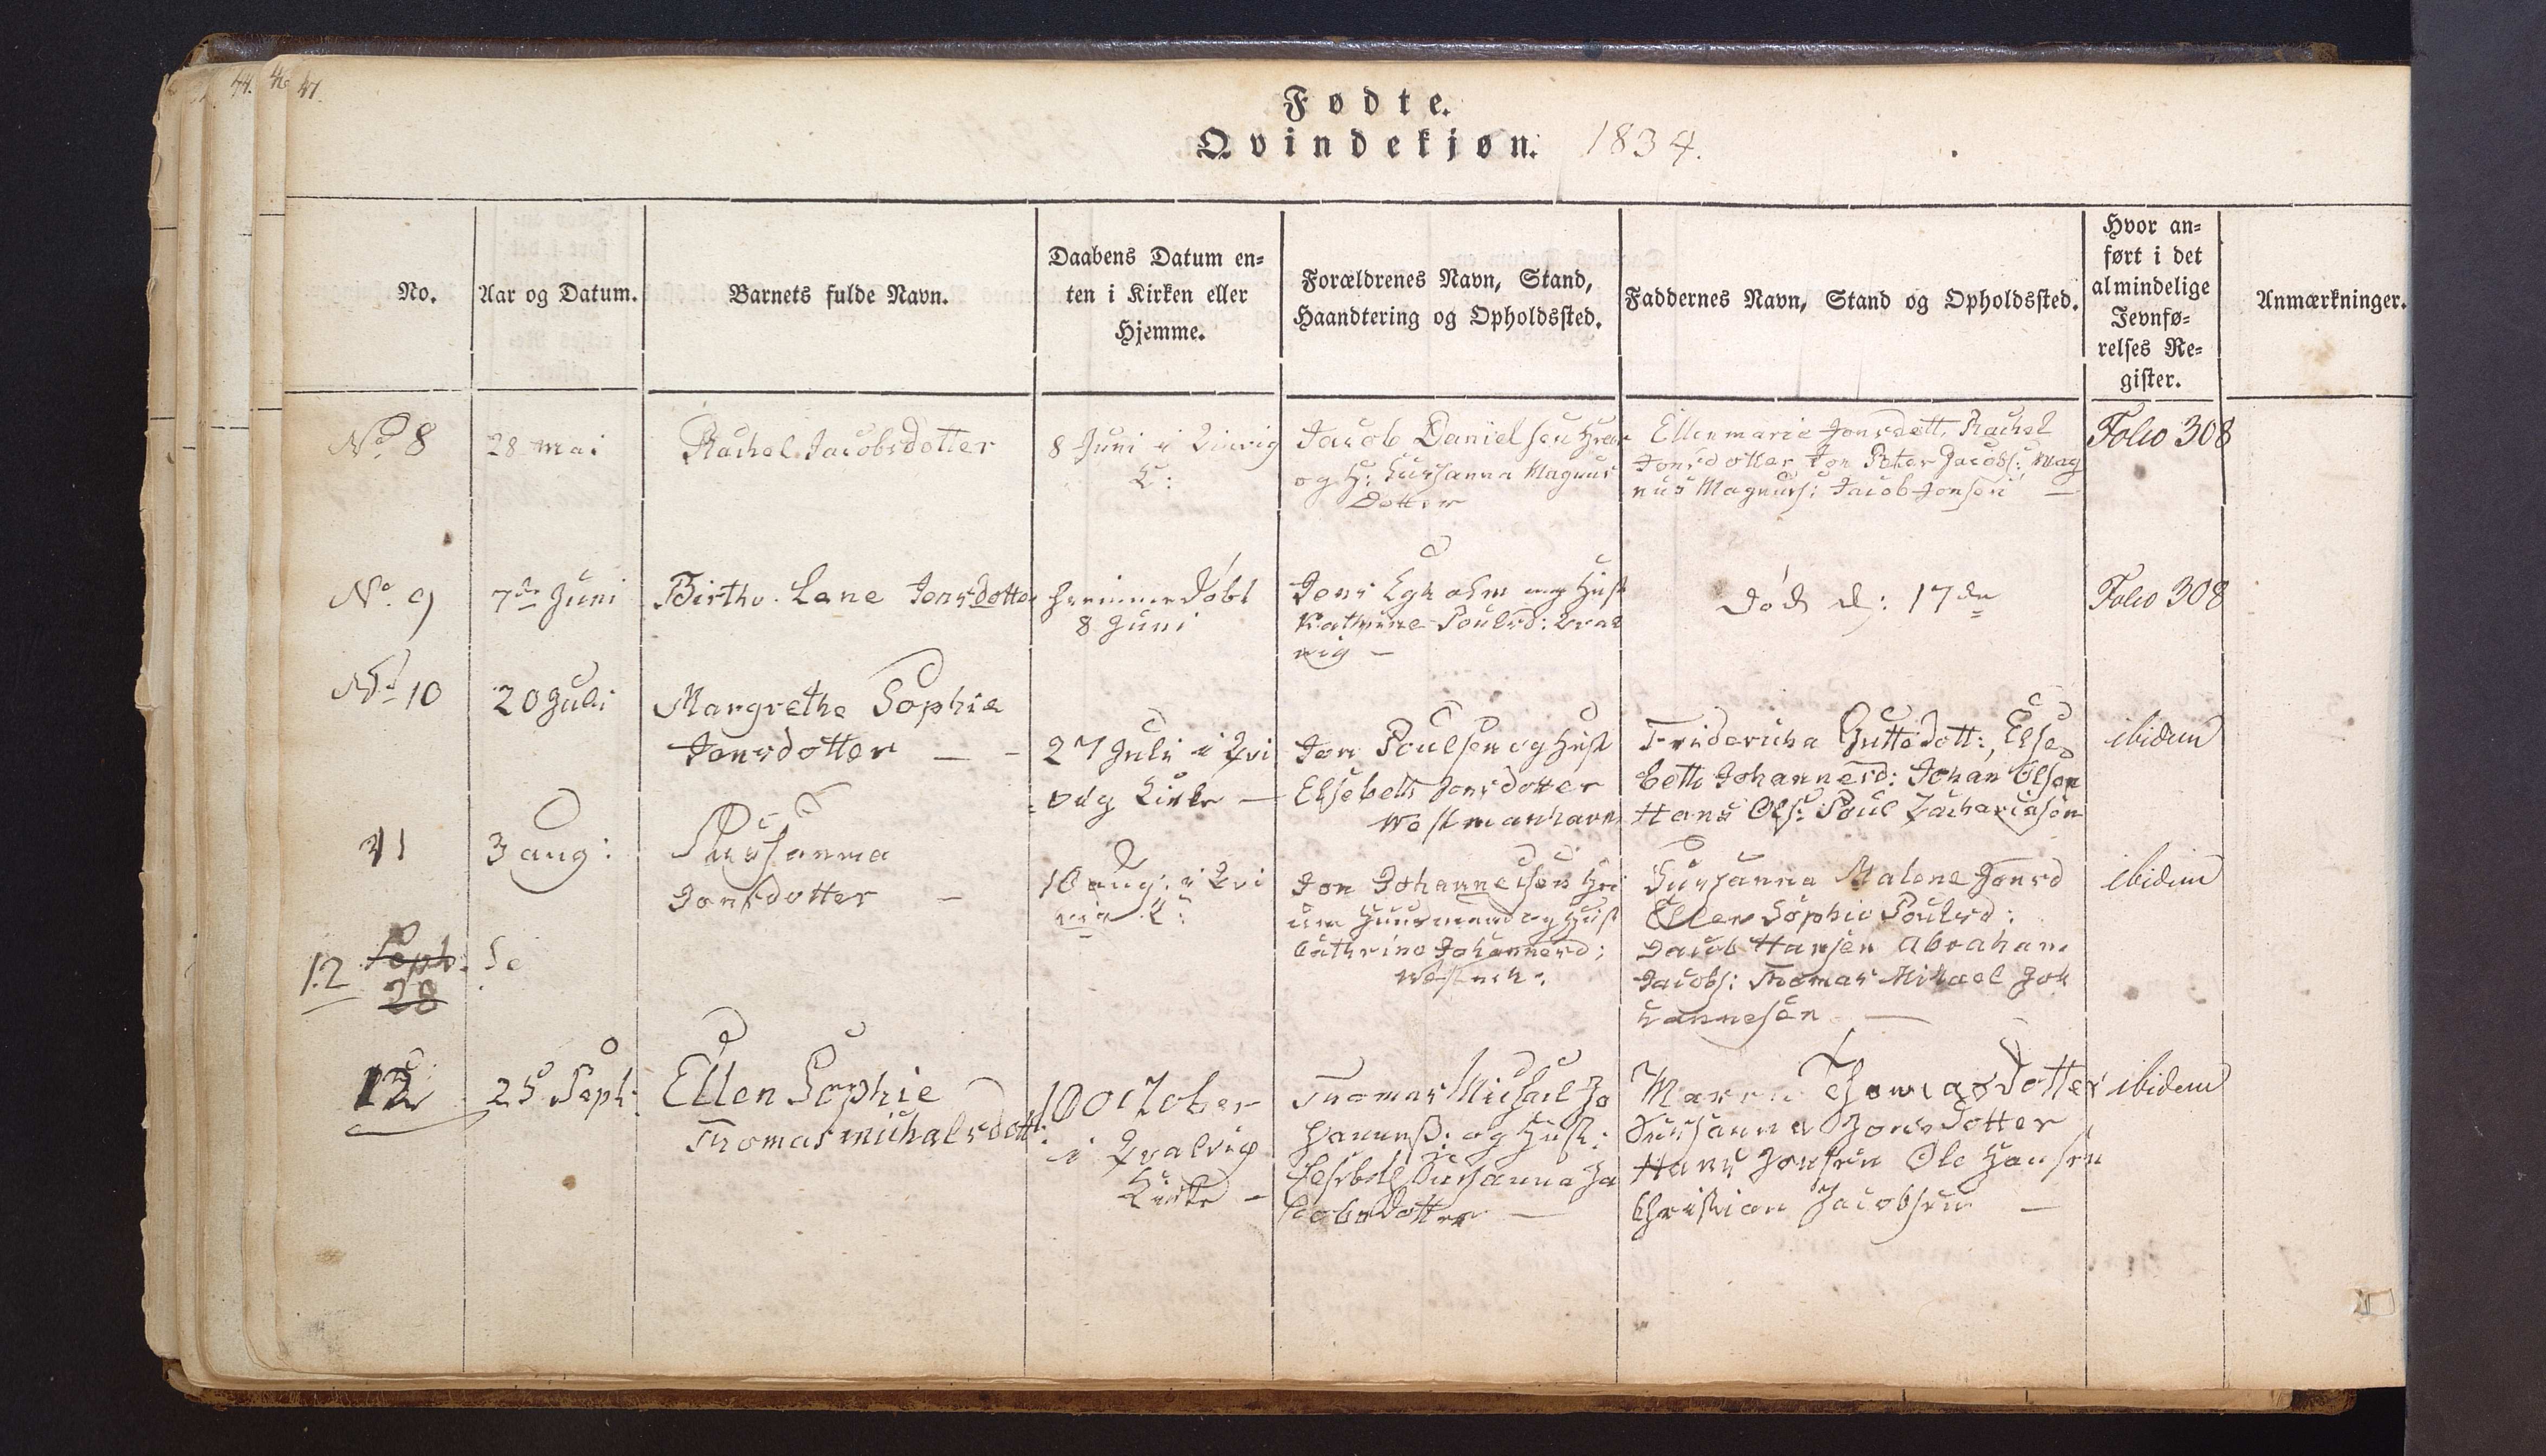 44. 46 47.
Fødte.
Qvindekjøn. 1834.
No.
Aar og Datum.
Barnets fulde Navn.
Daabens Datum en-
ten i Kirken eller
Hjemme.
Forældrenes Navn, Stand,
Haandtering og Opholdssted.
Faddernes Navn, Stand og Opholdssted.
Hvor an-
ført i det
almindelige
Jevnfø-
relses Re-
gister.
Anmærkninger.
No 8
28 Mai
Rachel Jacobsdotter
8 Juni i
K:
Jacob Danielsen
og H: Susanna Magnus
Dotter
Ellenmarie Jonsdott, Rachel
Jonsdotter Jon Peter Jacobs: Mag
nus Magnus: Jacob Jonsen —
Folio 308
No. 9
7de Juni
Birthe Lene Jensdotter
hjemmedøbt
8 Juni
Jens og Hust
Kathrine Poulsd:
vig —
død d: 17de
Folio 308
No 10
20 Juli
Margrethe Sophie
Jonsdotter —
27 Juli i Qvi
vig Kirke —
Jon Poulsen og Hust
Elsebeth Jonsdotter
Westmanhavn
Friderica Guttedott:, Else
beth Johannesd: Johan Olsen
Hans Ols: Poul Zachariasen
ibidem
11
3 aug:
Susanna
Jonsdotter —
10 aug: i Qvi
vig K:
Jon Johannesen
Huusmand og Hust
Cathrine Johannesd:
Susanna Malene Jonsd
Ellen Sophie Poulsd:
Jacob Hansen Abraham
Jacobs: Thomas Mikael Joh
hannesen —
ibidem
12
Sept. Se
28
12
25 Sept:
Ellen Sophie
Thomasmichalsdott:
10 October
i Qvalvig
Kirke —
Thomas Michael Jo
hannes: og Hust:
Elsebeth Susanna Ja
cobsdotter —
Maren Thomasdotter
Susanna Jonsdotter
Hans Jonsen Ole Hansen
Christian Jacobsen —
ibidem